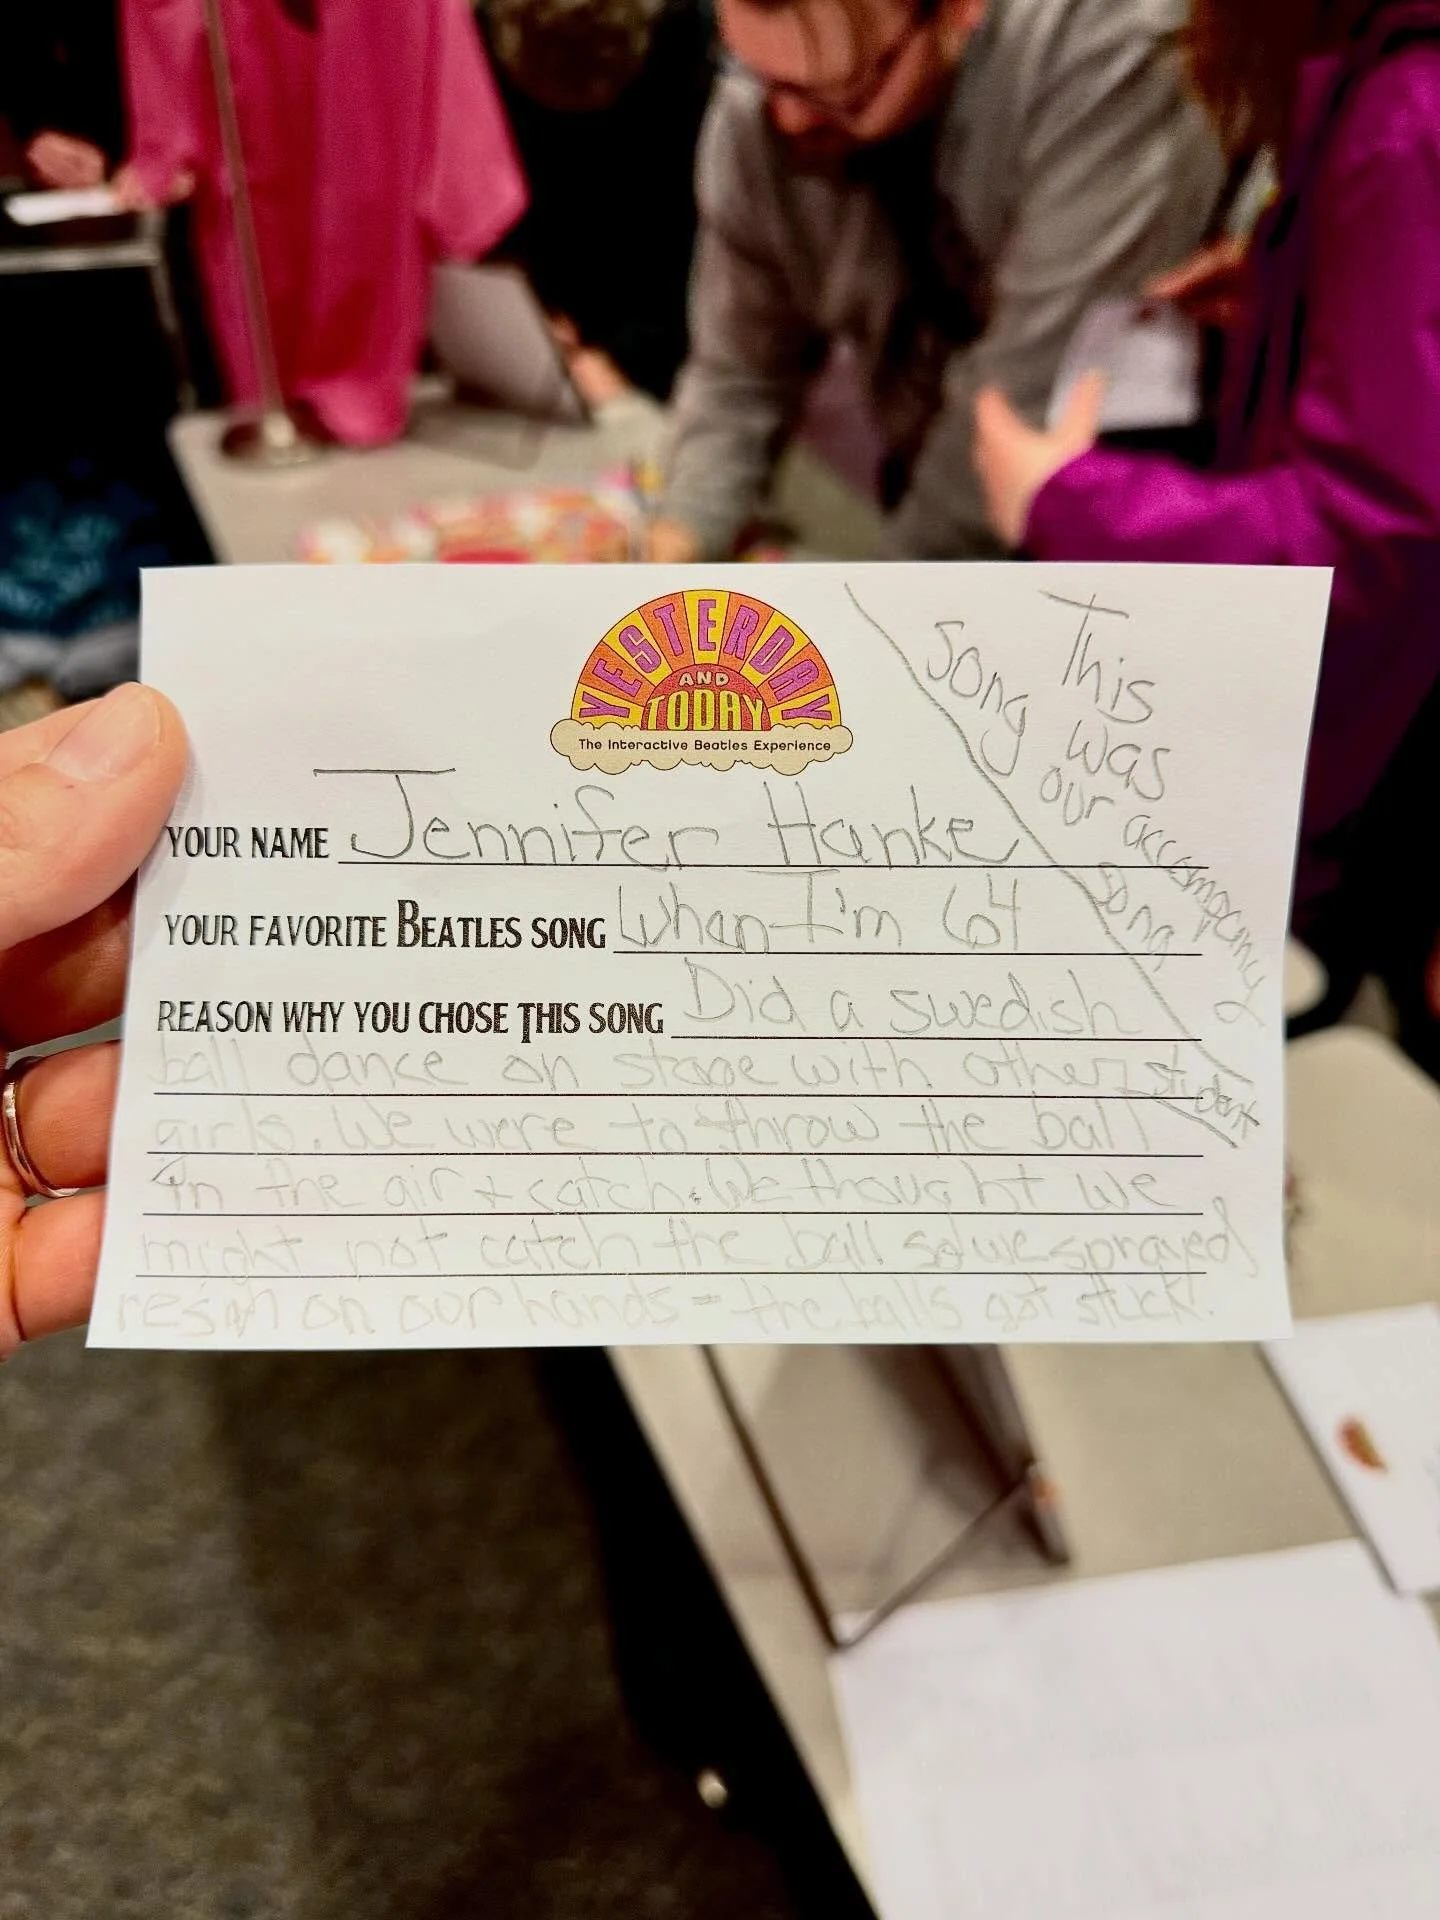 YESTERDAY
AND
TODAY
The Interactive Beatles Experience
YOUR NAME Jennifer Hanke
YOUR FAVORITE BEATLES SONG When I'm 64
REASON WHY YOU CHOSE THIS SONG Did a swedish
ball dance on stage with other
girls. We were to throw the ball
in the air + catch. We thought we
might not catch the ball so we sprayed
resin on our hands - the balls got stuck.
This
song was
our accompany
song